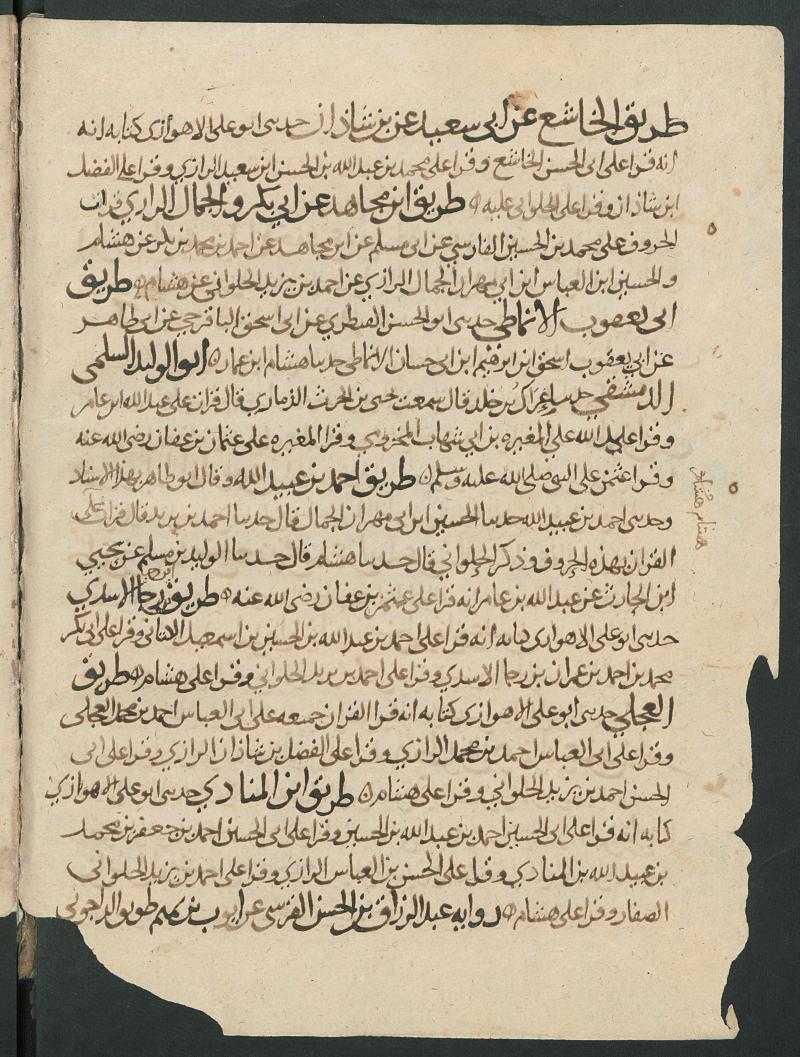 طريق الخاشع عن ابي سعيد عن بن شاذان حدثني ابو علي الاهوازي كتابة انه
انه قرا على ابي الحسن الخاشع وقرا على محمد بن عبدالله بن الحسن ابن سعيد الرازي وقرا على الفضل
ابن شاذان وقرا على الحلواني عليه طريق ابن مجاهد عن ابي بكر والجمال الرازي قرات
الحروف على محمد بن الحسين الفارسي عن ابي مسلم عن ابن مجاهد عن احمد بن محمد بن بكر عن هشام
والحسين ابن العباس ابن ابي مهران الجمال الرازي عن احمد بن يزيد الحلواني عن هشام طريق
ابي يعقوب الانماطي حدثني ابو الحسن القنطري عن ابي اسحق الباقرحي عن ابي طاهر
عن ابي يعقوب اسحق ابن ابرهيم ابن ابي حسان الانماطي حدثنا هشام ابن عمار ابو الوليد السلمي
الدمشقي حدثنا عراك بن خلد قال سمعت يحيى بن الحرث الذماري قال قرات على عبدالله ابن عامر
وقرا عبدالله على المغيره بن ابي شهاب المخزومي وقرا المغيره على عثمان بن عفان رضي الله عنه
وقرا عثمن على النبي صلى الله عليه وسلم طريق احمد بن عبيد الله وقال ابو طاهر بهذا الاسناد
وحدثني احمد بن عبيد الله حدثنا الحسين ابن ابي مهران الجمال قال حدثنا احمد بن يزيد قال قرات على
القران بهذه الحروف وذكر الحلواني قال حدثنا هشام قال حدثنا الوليد بن مسلم عن يحيى
ابن الحارث عن عبد الله بن عامر انه قرا على عثمن بن عفان رضي الله عنه طريق بن رجا الاسدي
حدثني ابو علي الاهوازي كتابه انه قرا على احمد بن عبد الله بن الحسين بن اسمعيل وقرا على ابي بكر
محمد بن احمد بن عمران بن رجا الاسدي وقرا على احمد بن يزيد الحلواني وقرا على هشام طريق
العجلي حدثني ابو علي الاهوازي كتابه انه قرا القران جميعه على ابي العباس احمد بن محمد العجلي
وقرا على ابي العباس احمد بن محمد الرازي وقرا على الفضل بن شاذان الرازي وقرا على ابي
الحسن احمد بن يزيد الحلواني وقرا على هشام طريق ابن المنادي حدثني ابو علي الاهوازي
كتابه انه قرا على ابي الحسين احمد بن عبد الله بن الحسين وقرا على ابي الحسين احمد بن جعفر بن محمد
بن عبيد الله بن المنادي وقرا على الحسن بن العباس الرازي وقرا على احمد بن يزيد الحلواني
الصفار وقرا على هشام روايه عبد الرزاق بن الحسن القرسي عن ايوب بن تميم طريق الداجوني
هشام